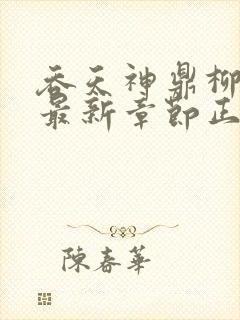 吞天神鼎柳
最新章節正
陳春華